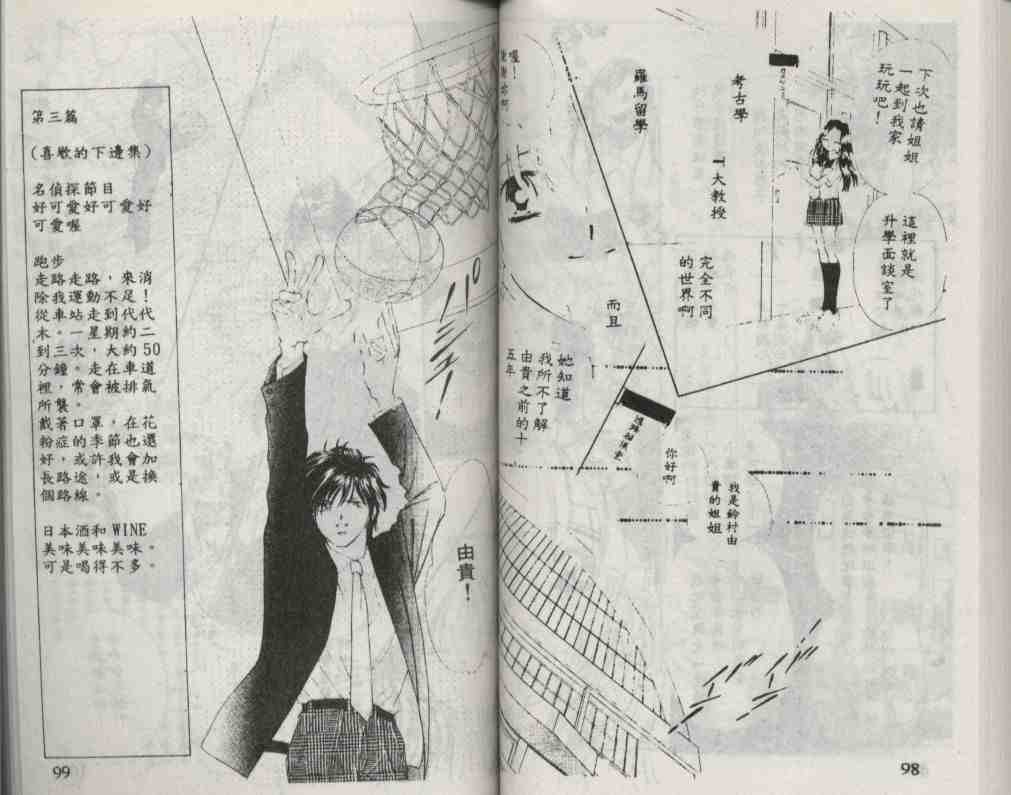 下次也請姐姐
一起到我家
玩玩吧！
這裡就是
升學面談室了
考古學
羅馬留學
T大教授
完全不同
的世界啊
而且
她知道
我所不了解
由貴之前的十
五年
你好啊
我是鈴村由
貴的姐姐
98
由貴！
第三篇
（喜歡的下邊集）
名偵探節目
好可愛好可愛好
可愛喔
跑步
走路走路，來消
除我運動不足！
從車站走到代代
木。一星期約二
到三次，大約50
分鐘。走在車道
裡，常會被排氣
所襲。
戴著口罩，在花
粉症的季節也還
好，或許我會加
長路途，或是換
個路線。
日本酒和WINE
美味美味美味。
可是喝得不多。
99